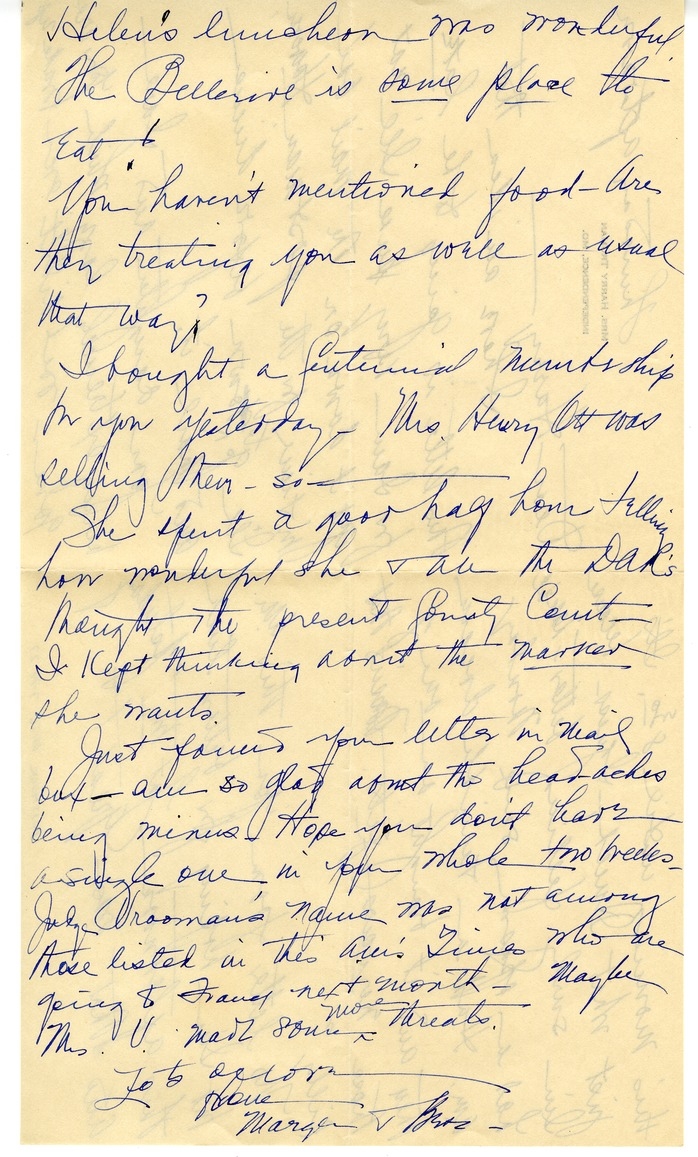 Helen's luncheon was wonderful.
The Bellerive is some place to
eat!
You haven't mentioned food - Are
they treating you as well as usual
that way?
I bought a Centennial Membership
for you yesterday - Mrs. Henry Ott was
selling them - so -
She spent a good half hour telling
how wonderful she & all the DAR's
thought the present County Court -
I kept thinking about the marker
she wants.
Just found your letter in mail
box - am so glad about the head-aches
being minus - Hope you don't have
a single one in your whole two weeks -
Judge Vrooman's name was not among
those listed in this a.m.'s Times who are
going to France next month - Maybe
Mrs. V. made some more threats.
Lots of love
from
Marger & Bess -